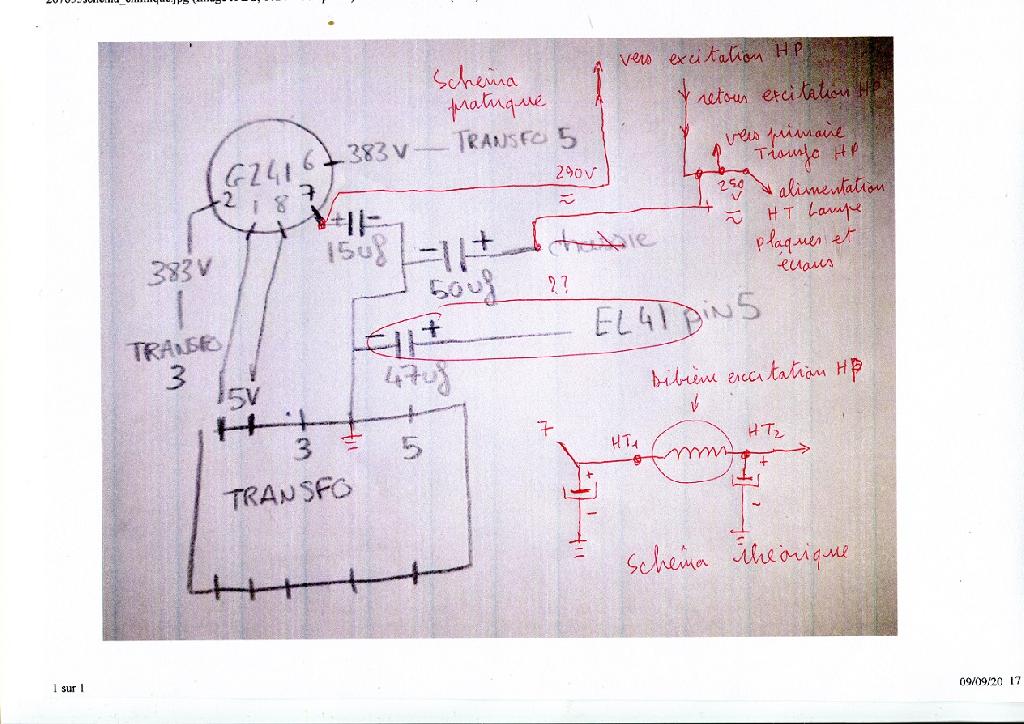 vers excitation HP
Schéma
pratique
retour excitation HP
vers primaire
Transfo HP
383V — TRANSFO 5
GZ41
6
7
2
1 8
290V
≈
250
V
≈
alimentation
HT Lampe
plaques et
écrans
+ -
15uf
- +
50uf
383V
TRANSFO
3
??
- +
EL41 PIN 5
47uf
5V
3
5
TRANSFO
bibiène excitation HP
7
HT1
HT2
+
-
+
-
Schéma théorique
1 sur 1
09/09/20 17